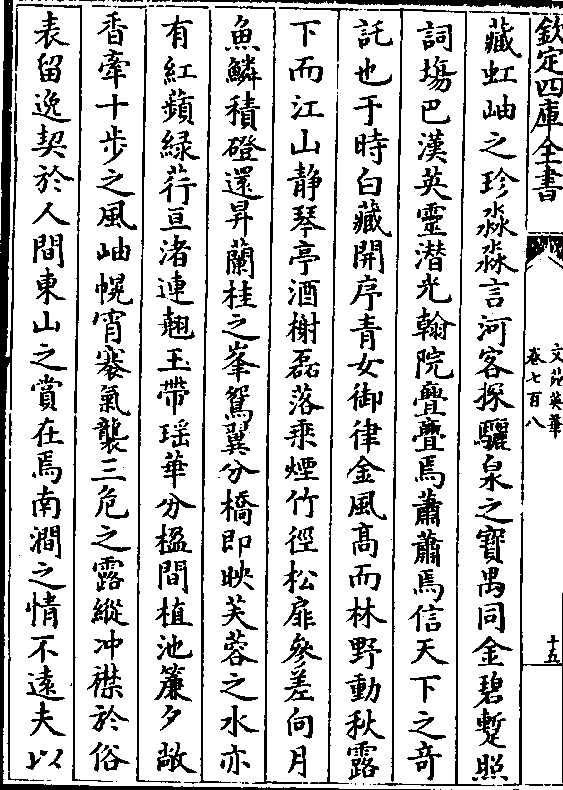 欽定四庫全書
文苑英華
卷七百八
十五
藏虹岫之珍淼淼言河客探驪泉之寶禺同金碧蹔照
詞塲巴漢英靈潜光翰院亹亹焉蕭蕭焉信天下之奇
託也于時白藏開序青女御律金風髙而林野動秋露
下而江山静琴亭酒榭磊落乘煙竹徑松扉參差向月
魚鱗積磴還昇蘭桂之峯鴛翼分橋即映芙蓉之水亦
有紅蘋綠荇亘渚連翹玉帶瑶華分楹間植池簾夕敞
香牽十步之風岫幌宵褰氣襲三危之露縱冲襟於俗
表留逸契於人間東山之賞在焉南澗之情不遠夫以